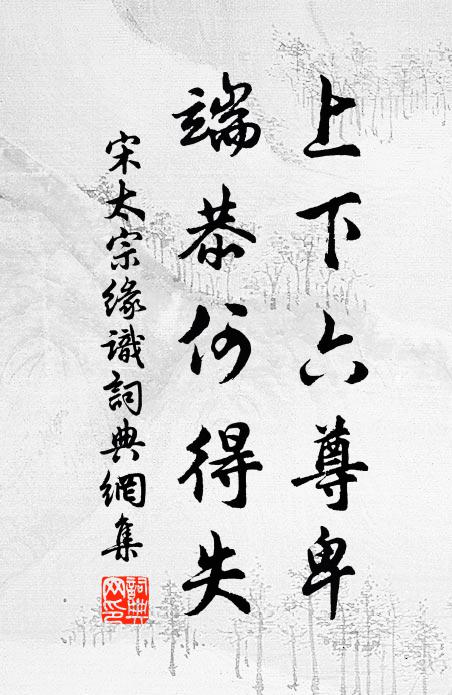 上下六尊卑
端恭何得失
宋太宗緣識詞典網集
詞典网印